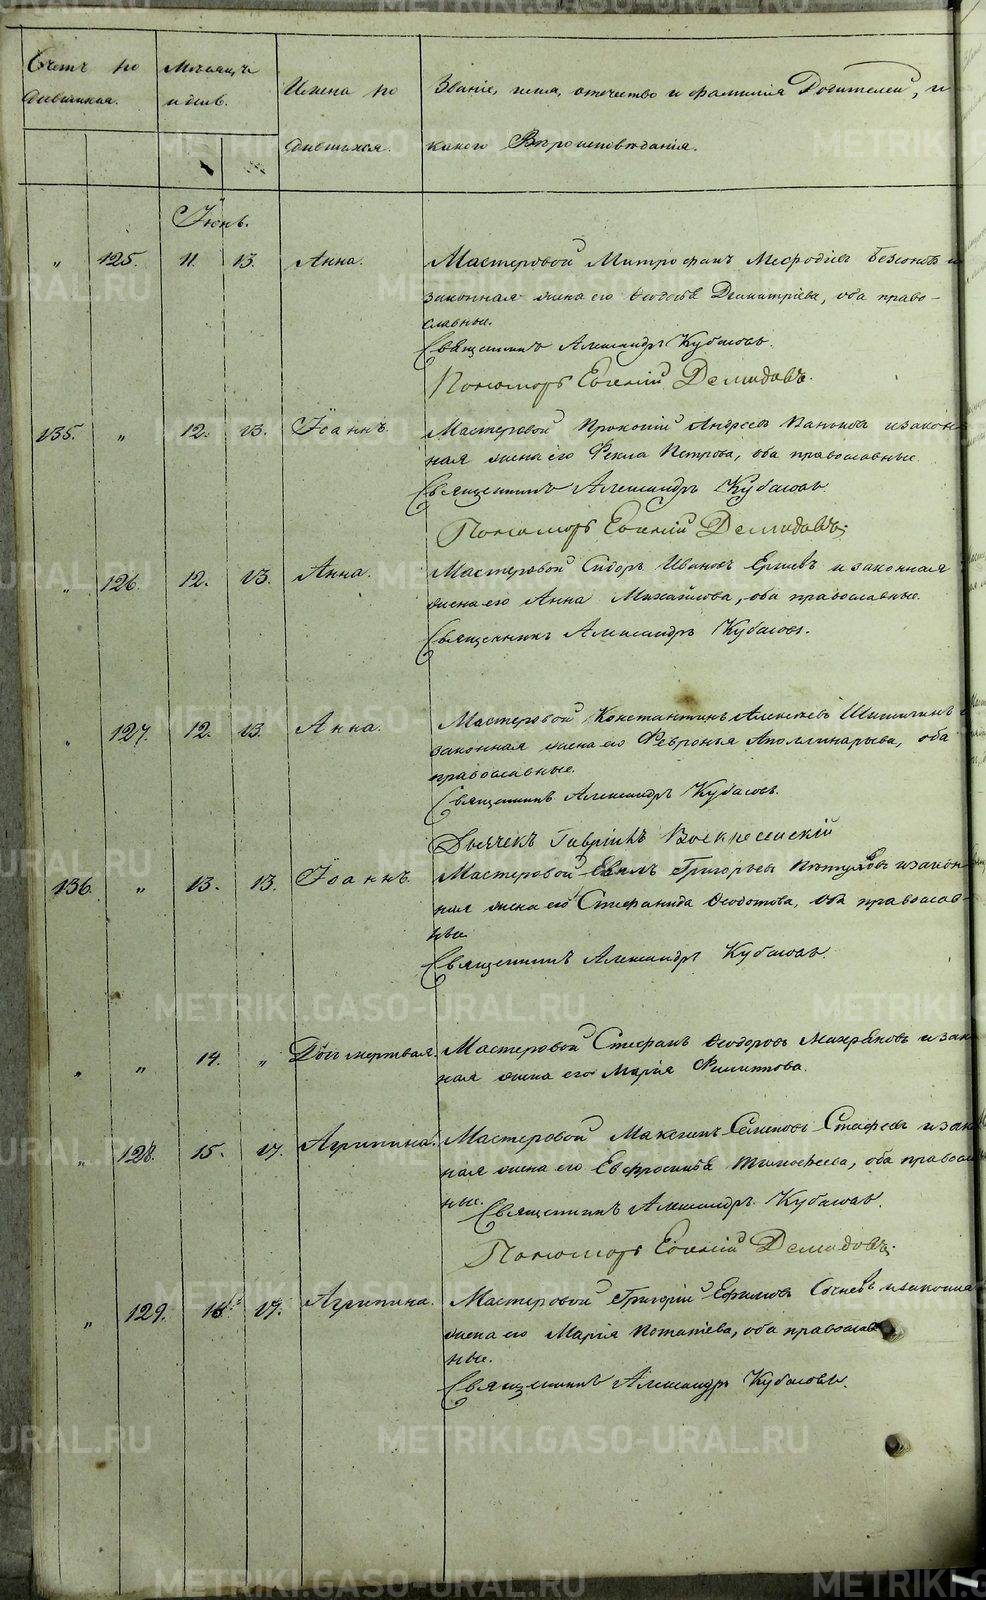 METRIKI.GASO-URAL.RU
Счетъ ро Мѣсяцъ
дившихся. и день. Имена ро Званіе, имя, отечество и фамилія Родителей, и
дившихся. какого Вѣроисповѣданія.
Іюнь.
" 125. 11. 13. Анна. Мастеровой Митрофанъ Мефодіевъ и
законная жена его Димитріева, оба право-
славные.
Священникъ Александръ Кубасовъ.
Пономорь Евгений Демидовъ.
135. " 12. 13. Іоаннъ. Мастеровой Прокопій Андреевъ Паньковъ и закон-
ная жена его Фекла Петрова, оба православные.
Священникъ Александръ Кубасовъ.
Пономорь Евгений Демидовъ.
" 126. 12. 13. Анна. Мастеровой Сидоръ Ивановъ и законная
жена его Анна Михайлова, оба православные.
Священникъ Александръ Кубасовъ.
" 127. 12. 13. Анна. Мастеровой Константинъ Алексѣевъ и
законная жена его Февронья Аполлинарьева, оба
православные.
Священникъ Александръ Кубасовъ.
Дьячекъ Гавріилъ Воскресенскій
136. " 13. 13. Іоаннъ. Мастеровой Григорьевъ и закон-
ная жена его Стефанида Ѳеодотова, оба православ-
ные.
Священникъ Александръ Кубасовъ.
" " 14. " мертвая. Мастеровой Стефанъ Ѳеодоровъ и зак
ная жена его Марія Филиппова.
" 128. 15. 17. Агрипина. Мастеровой Семеновъ и зак
ная жена его Тимофеева, оба православ
ные. Священникъ Александръ Кубасовъ.
Пономорь Евгений Демидовъ.
" 129. 17. Агрипина. Мастеровой Григорій Ефимовъ и законна
жена его Марія оба православ
ные.
Священникъ Александръ Кубасовъ.